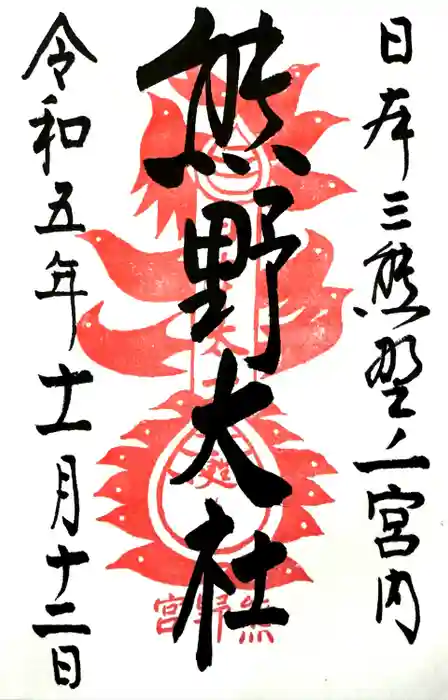 日本三熊野之一宮内
熊野大社
令和五年十一月十二日
熊野宮